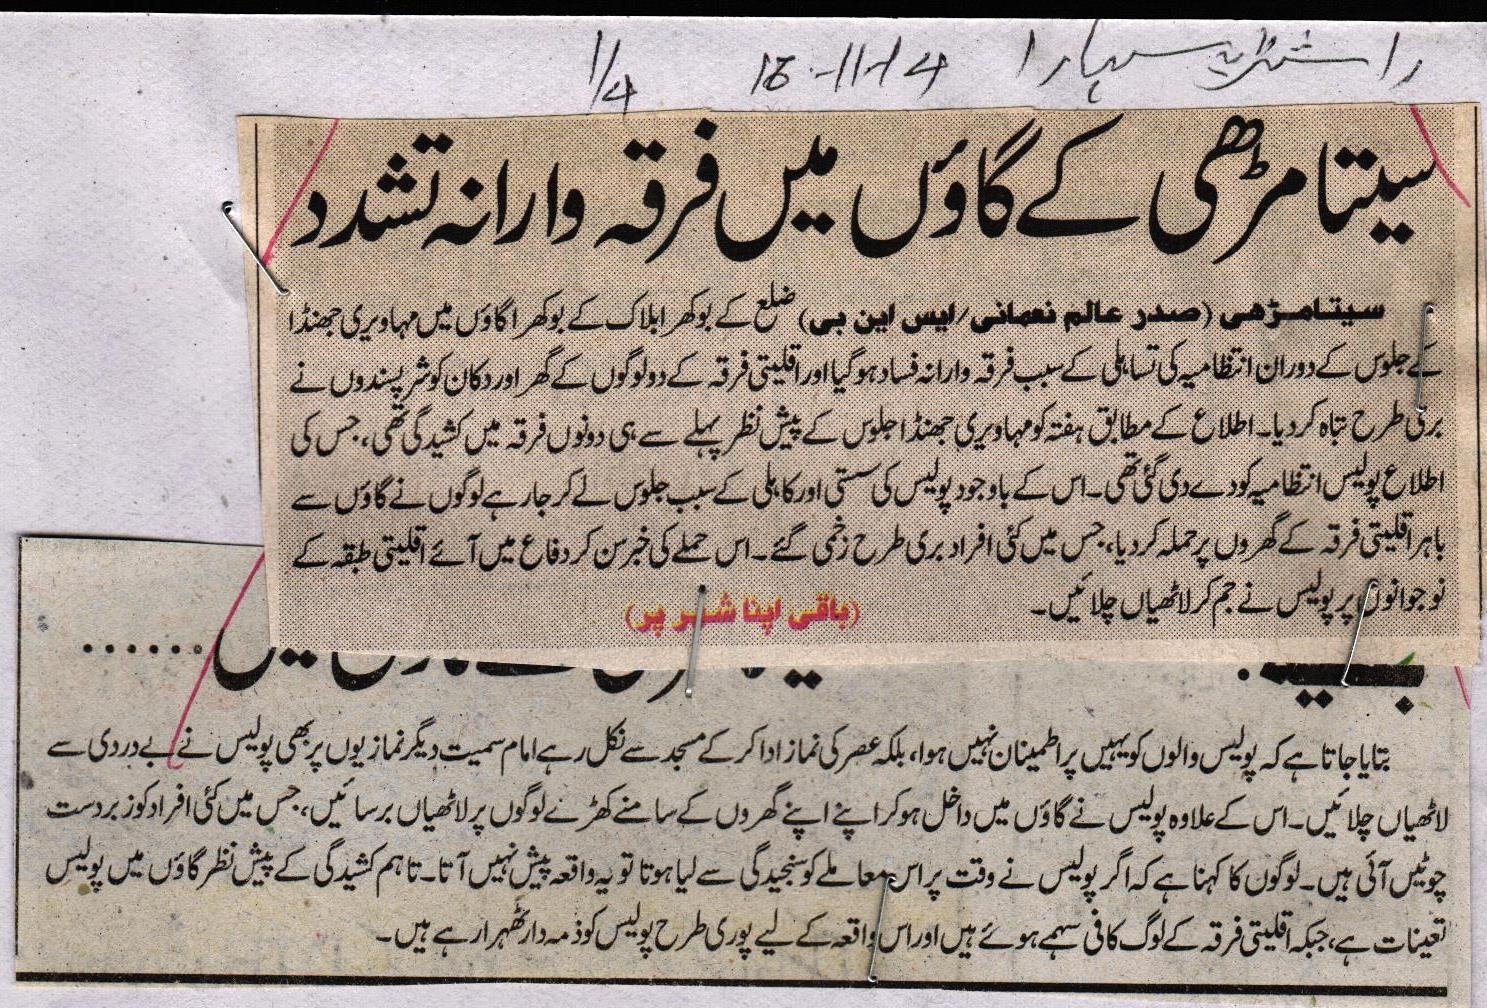 راشٹریہ سہارا 16-11-14 1/4
سیتامڑھی کے گاؤں میں فرقہ وارانہ تشدد
سیتامڑھی (صدر عالم نعمانی/ایس این بی) ضلع کے بوکھرا بلاک کے بوکھرا گاؤں میں مہاویری جھنڈا
کے جلوس کے دوران انتظامیہ کی تساہلی کے سبب فرقہ وارانہ فساد ہوگیا اور اقلیتی فرقہ کے دو لوگوں کے گھر اور دکان کو شرپسندوں نے
بری طرح تباہ کر دیا۔ اطلاع کے مطابق ہفتہ کو مہاویری جھنڈا جلوس کے پیش نظر پہلے سے ہی دونوں فرقہ میں کشیدگی تھی، جس کی
اطلاع پولیس انتظامیہ کو دے دی گئی تھی۔ اس کے باوجود پولیس کی سستی اور کاہلی کے سبب جلوس لے کر جا رہے لوگوں نے گاؤں سے
باہر اقلیتی فرقہ کے گھروں پر حملہ کر دیا، جس میں کئی افراد بری طرح زخمی ہو گئے۔ اس حملے کی خبر سن کر دفاع میں آئے اقلیتی طبقہ کے
نوجوانوں پر پولیس نے جم کر لاٹھیاں چلائیں۔
(باقی اپنا شہر پر)
بتایا جاتا ہے کہ پولیس والوں کو یہیں پر اطمینان نہیں ہوا، بلکہ عصر کی نماز ادا کر کے مسجد سے نکل رہے امام سمیت دیگر نمازیوں پر بھی پولیس نے بے دردی سے
لاٹھیاں چلائیں۔ اس کے علاوہ پولیس نے گاؤں میں داخل ہو کر اپنے اپنے گھروں کے سامنے کھڑے لوگوں پر لاٹھیاں برسائیں، جس میں کئی افراد کو زبردست
چوٹیں آئی ہیں۔ لوگوں کا کہنا ہے کہ اگر پولیس نے وقت پر اس معاملے کو سنجیدگی سے لیا ہوتا تو یہ واقعہ پیش نہیں آتا۔ تاہم کشیدگی کے پیش نظر گاؤں میں پولیس
تعینات ہے، جبکہ اقلیتی فرقہ کے لوگ کافی سہمے ہوئے ہیں اور اس واقعہ کے لیے پوری طرح پولیس کو ذمہ دار ٹھہرا رہے ہیں۔